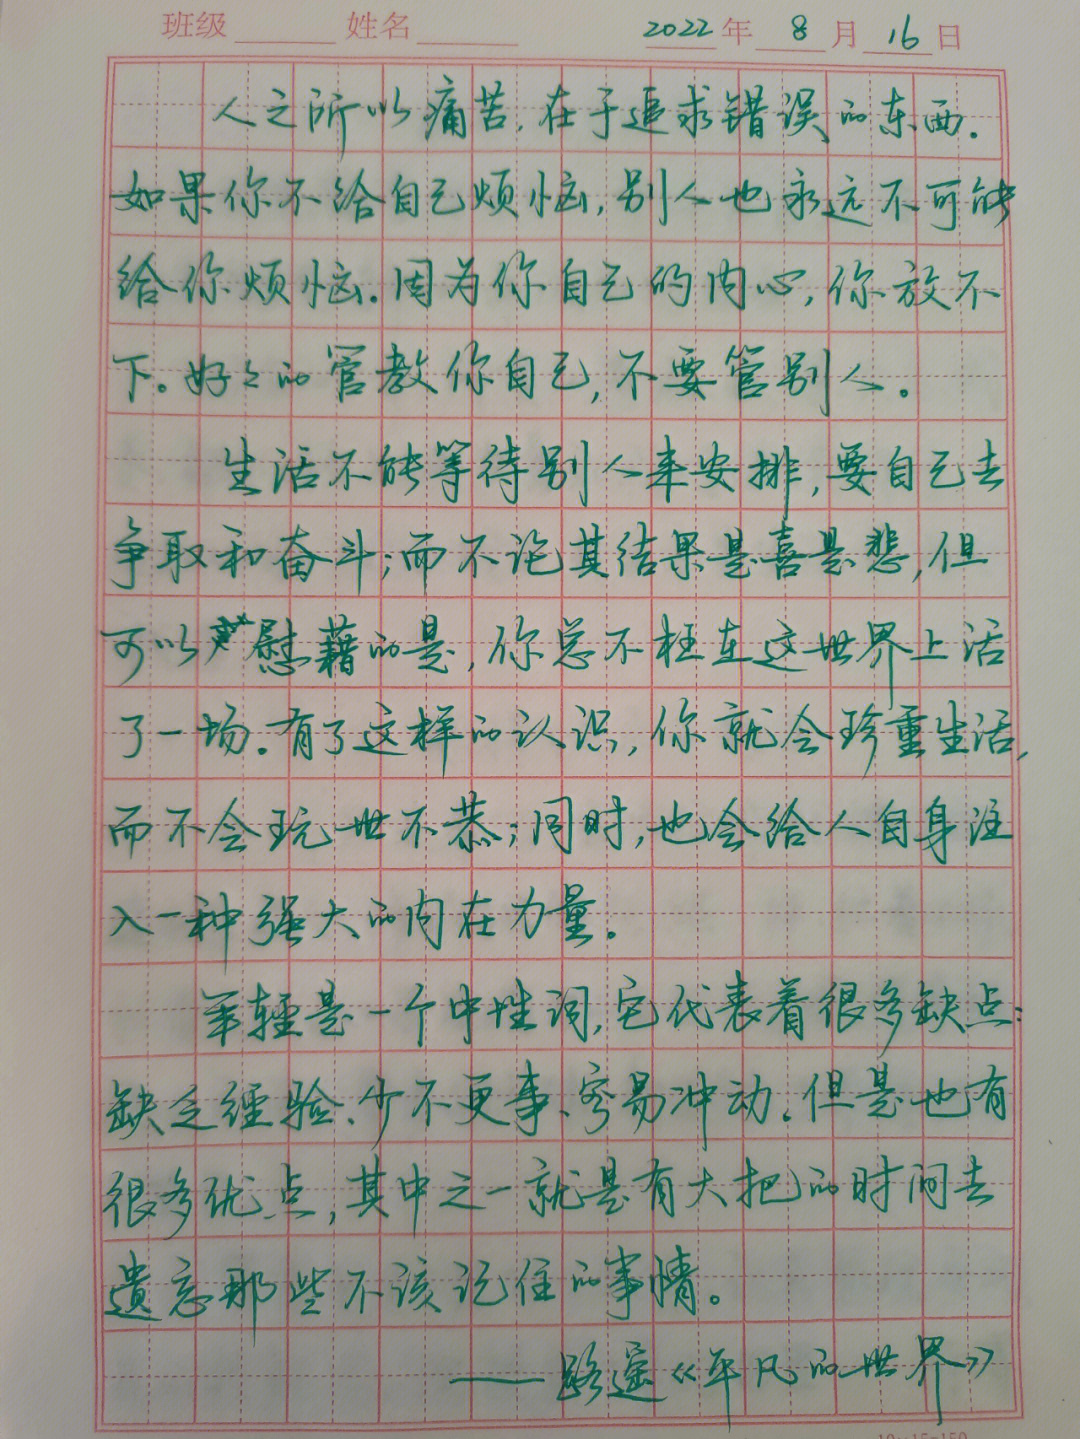 班级 姓名 2022年 8月 16日
人之所以痛苦,在于追求错误的东西.
如果你不给自己烦恼,别人也永远不可能
给你烦恼.因为你自己的内心,你放不
下。好々的管教你自己,不要管别人。
生活不能等待别人来安排,要自己去
争取和奋斗;而不论其结果是喜是悲,但
可以慰藉的是,你总不枉在这世界上活
了一场.有了这样的认识,你就会珍重生活,
而不会玩世不恭;同时,也会给人自身注
入一种强大的内在力量。
年轻是一个中性词,它代表着很多缺点:
缺乏经验、少不更事、容易冲动.但是也有
很多优点,其中之一就是有大把的时间去
遗忘那些不该记住的事情。
——路遥《平凡的世界》